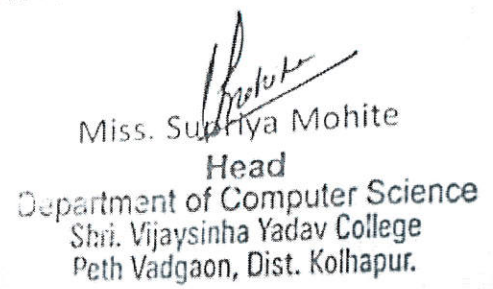 Miss. Supriya Mohite
Head
Department of Computer Science
Shri. Vijaysinha Yadav College
Peth Vadgaon, Dist. Kolhapur.